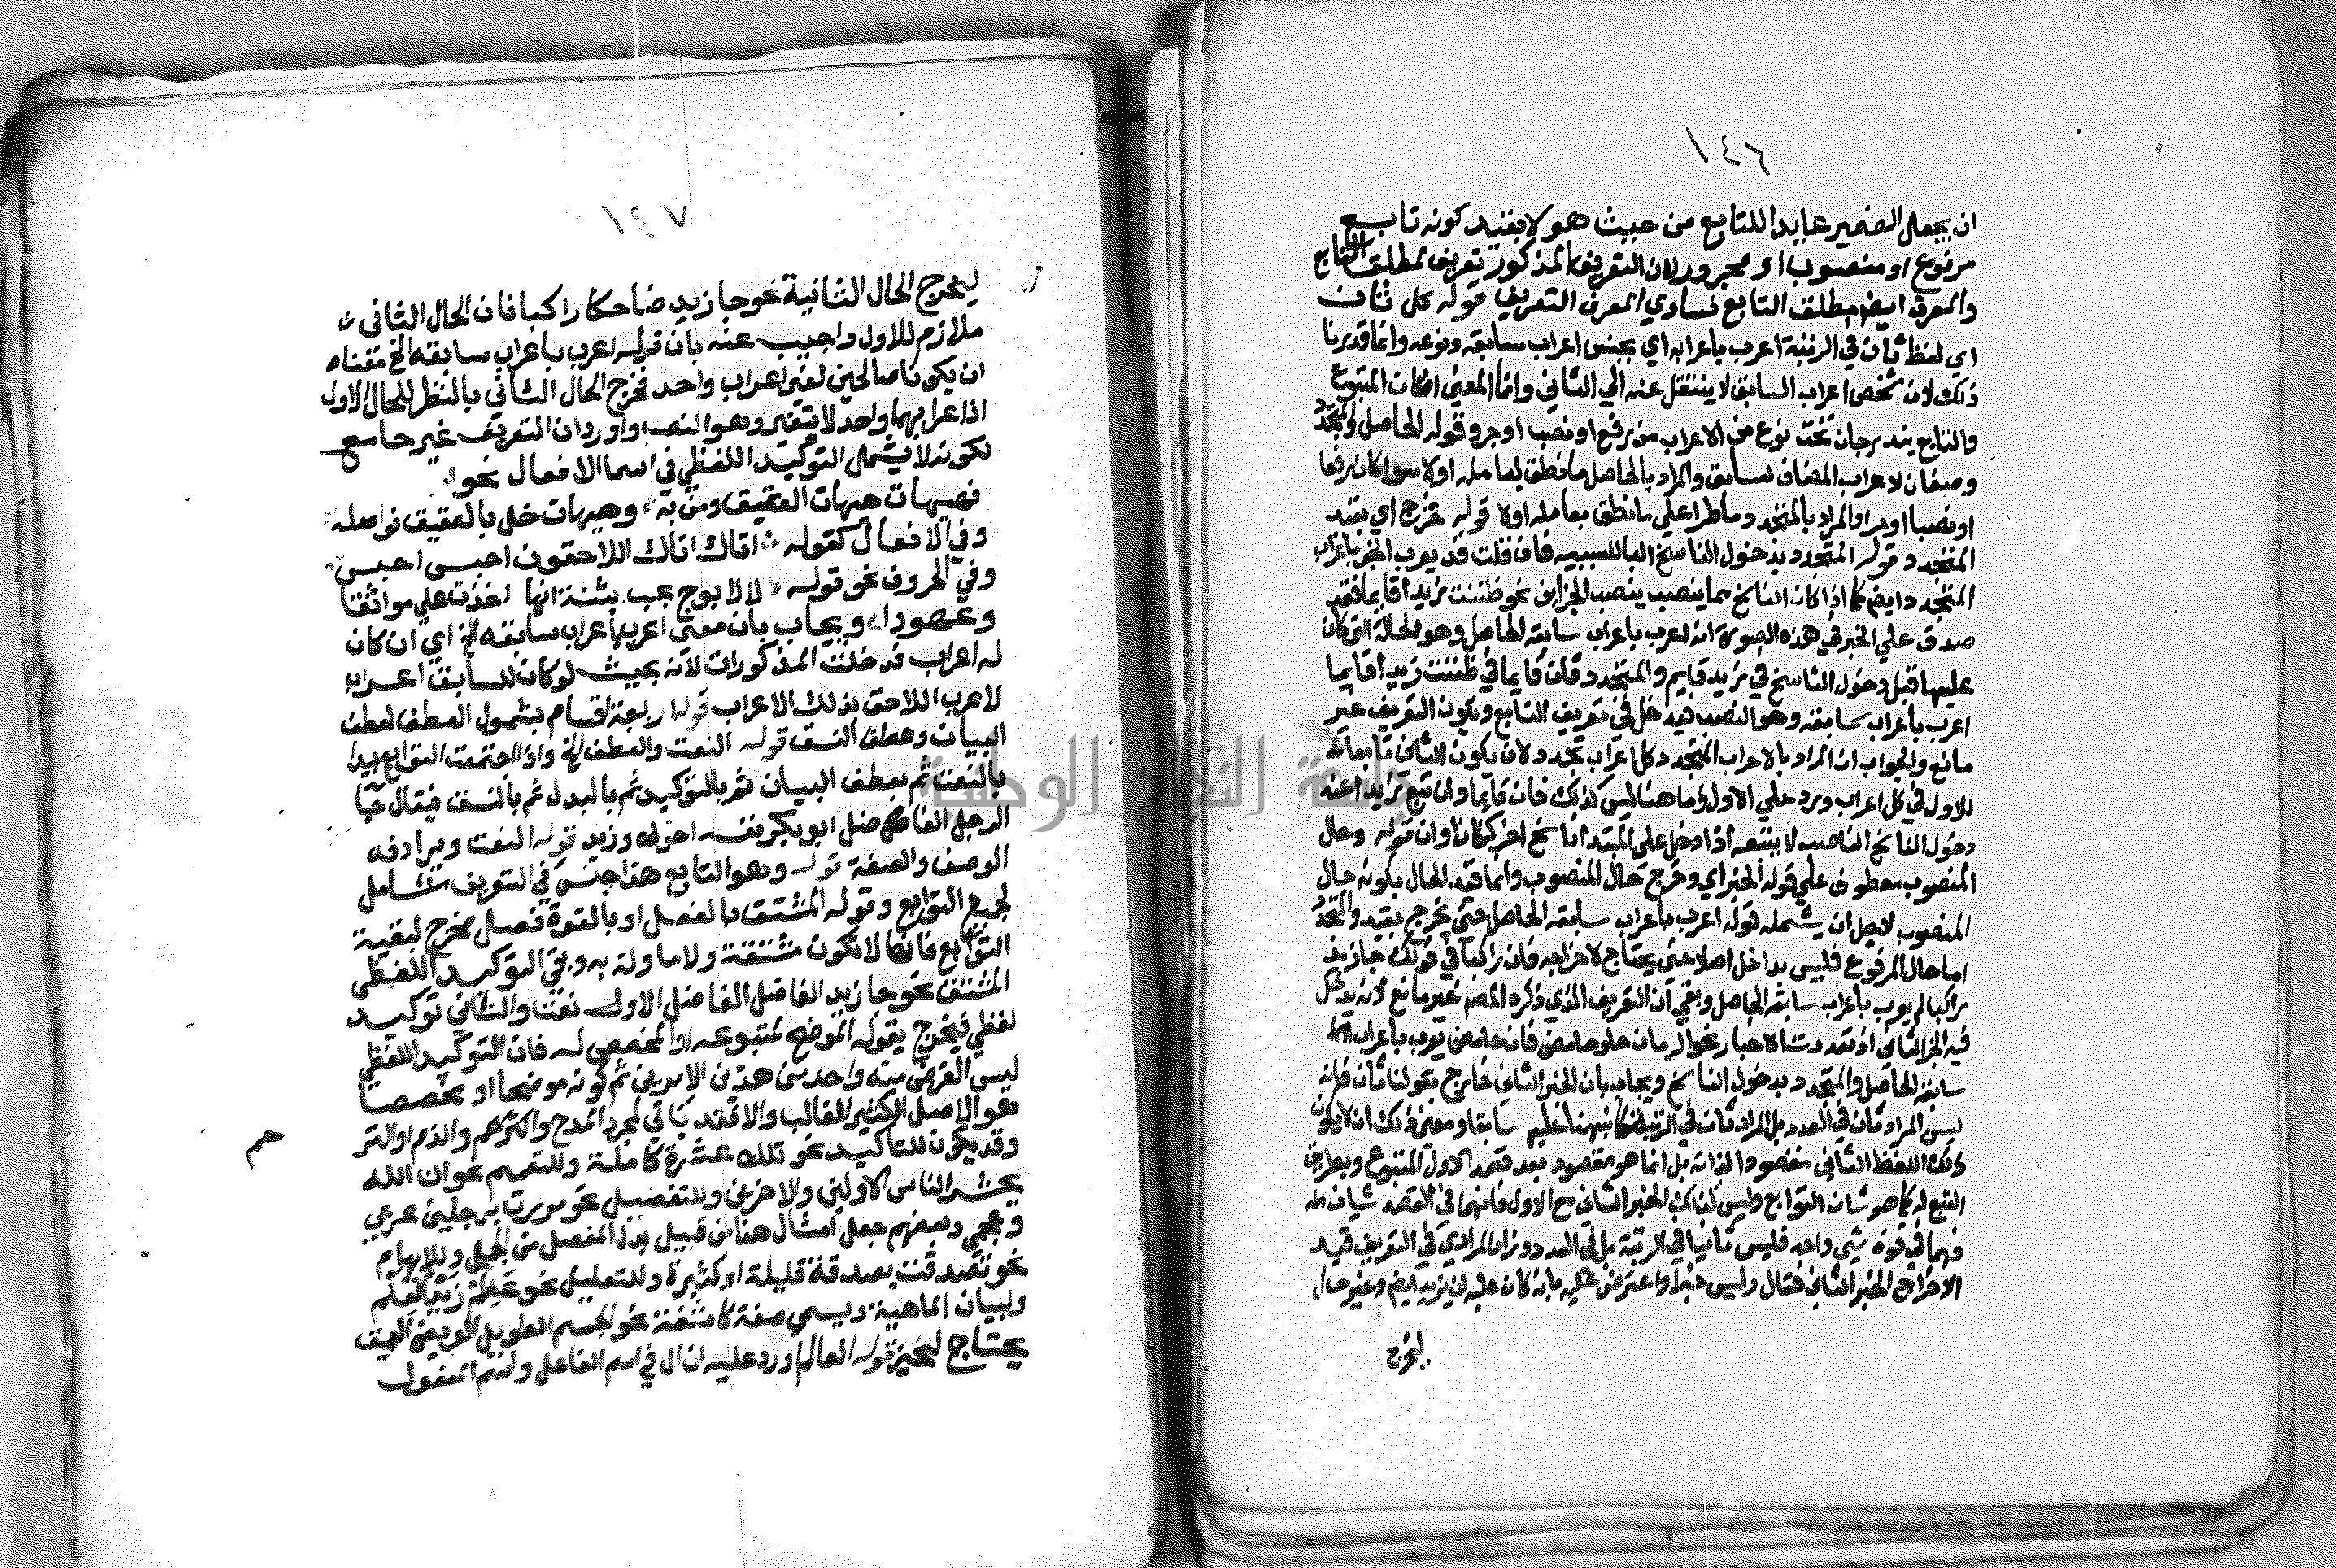 ١٤٦
ان يجعل الضمير عايدا للتابع من حيث هو لا يفيد كونه تابع
مرفوع او منصوب او مجرور لان التعريف المذكور تعريف لمطلق التابع
والمعرف ايضا مطلق التابع فساوي المعرف التعريف قوله كل ثان
اي لفظ ثان في الرتبة اعرب باعرابه اي بجنس اعراب سابقه ونوعه وانما قدرنا
ذلك لان شخص اعراب السابق لا ينتقل عنه الي الثاني وانما المعني ان كان المتبوع
والتابع يندرجان تحت نوع من الاعراب من رفع او نصب او جر وقوله الحاصل والمتجدد
وصفان لاعراب المضاف لسابق والمراد بالحاصل ما نطق بعامله اولا سوا كان رفعا
او نصبا او جرا والمراد بالمتجدد وما طرا علي ما نطق بعامله اولا قوله خرج اي بقيد
المتجدد وقوله المتجدد بدخول الناسخ البا للسببيه فان قلت قد يعرب الخبر باعراب
المتجدد ايضا كما اذا كان الناسخ مما ينصب الجزاين نحو ظننت زيدا قايما فقد
صدق علي الخبر في هذه الصورة انه اعرب باعراب سابقه الحاصل وهو الحالة التي كان
عليها قبل دخول الناسخ في زيد قايم والمتجدد فان قايما في ظننت زيدا قايما
اعرب باعراب سابقه وهو النصب فيدخل في تعريف التابع ويكون التعريف غير
مانع والجواب ان المراد بالاعراب المتجدد كل اعراب تجدد ولان يكون الثاني تابعا
للاول في كل اعراب ويرد علي الاول وما هنا ليس كذلك فان قايما وان تبع زيدا عند
دخول الناسخ الناصب لا يتبعه اذا دخل علي المبتدا ناسخ اخر ككان او ان قوله وحال
المنصوب معطوف علي قوله الخبر اي وخرج حال المنصوب وانما قيد الحال بكونه حال
المنصوب لاجل ان يشمله قوله اعرب باعراب سابقه الحاصل حتي يخرج بقيد والمتجدد
اما حال المرفوع فليس بداخل اصلا حتي يحتاج لاخراجه فان راكبا في قولك جا زيد
راكبا لم يعرب باعراب سابقه الحاصل وبقي ان التعريف الذي ذكره المصنف غير مانع لانه يدخل
فيه الخبر الثاني اذ تعددت الاخبار نحو الرمان حلو حامض فان حامض يعرب باعراب
سابقه الحاصل والمتجدد بدخول الناسخ ويجاب بان الخبر الثاني خارج بقولنا ثان فانه
ليس المراد ثان في العدد بل المراد ثان في الرتبة كما نبهنا عليه سابقا ومعني ذلك ان لا يكون
ذلك اللفظ الثاني مقصودا لذاته بل انما هو مقصود بعد قصد الاول المتبوع وبطريق
التبع له كما هو شان التوابع وليس كذلك الخبر الثاني مع الاول فانهما في القصد شيان
فهما في قوة شي واحد فليس ثانيا في الرتبة بل في العدد وزاد المرادي في التعريف قيد
الاخراج الخبر الثاني فقال وليس خبرا واعترض عليه بانه كان عليه ان يزيد ايضا وغير حال
ليخرج
١٤٧
ليخرج الحال الثانية نحو جا زيد ضاحكا راكبا فان الحال الثاني
ملازم للاول واجيب عنه بان قوله اعرب باعراب سابقه الخ معناه
ان يكونا صالحين لغير اعراب واحد فخرج الحال الثاني بالنظر للحال الاول
اذ اعرابهما واحد لا يتغير وهو النصب واورد ان التعريف غير جامع
لكونه لا يشمل التوكيد اللفظي في اسما الافعال نحو
فهيهات هيهات العقيق ومن به وهيهات خل بالعقيق نواصله
وفي الافعال كقوله اتاك اتاك اللاحقون احبس احبس
وفي الحروف نحو قوله لا لا ابوح بحب بثنة انها اخذت علي مواثقا
وعهودا ويجاب بان معني اعرب باعراب سابقه الخ اي ان كان
له اعراب فدخلت المذكورات لانه بحيث لو كان للسابق اعراب
لاعرب اللاحق بذلك الاعراب قوله اربعة اقسام بشمول العطف لعطف
البيان وعطف النسق قوله النعت والعطف الخ واذا اجتمعت التوابع بدا
بالنعت ثم بعطف البيان ثم بالتوكيد ثم بالبدل ثم بالنسق فيقال جا
الرجل الفاضل ابو بكر نفسه اخوك وزيد قوله النعت ويرادفه
الوصف والصفة قوله وهو التابع هذا جنس في التعريف شامل
لجميع التوابع وقوله المشتق بالفعل او بالقوة فصل مخرج لبقية
التوابع فانها لا تكون مشتقة ولا ماولة به وبقي التوكيد اللفظي
المشتق نحو جا زيد الفاضل الفاضل الاول نعت والثاني توكيد
لفظي فيخرج بقوله الموضح لمتبوعه او المخصص له فان التوكيد اللفظي
ليس الغرض منه واحد من هذين الامرين ثم كونه موضحا او مخصصا
هو الاصل الكثير الغالب والا فقد ياتي لمجرد المدح والترحم والذم او
وقد يكون للتاكيد نحو تلك عشرة كاملة وللتعميم نحو ان الله
يحشر الناس الاولين والاخرين وللتفصيل نحو مررت برجلين عربي
وعجمي وبعضهم جعل امثال هذا من قبيل بدل المفصل من المجمل وللابهام
نحو تصدقت بصدقة قليلة او كثيرة وللتعليل نحو
ولبيان الماهية ويسمي صفة كاشفة نحو الجسم الطويل العريض العميق
يحتاج لحيز قوله العالم اورد عليه ان ال في اسم الفاعل واسم المفعول